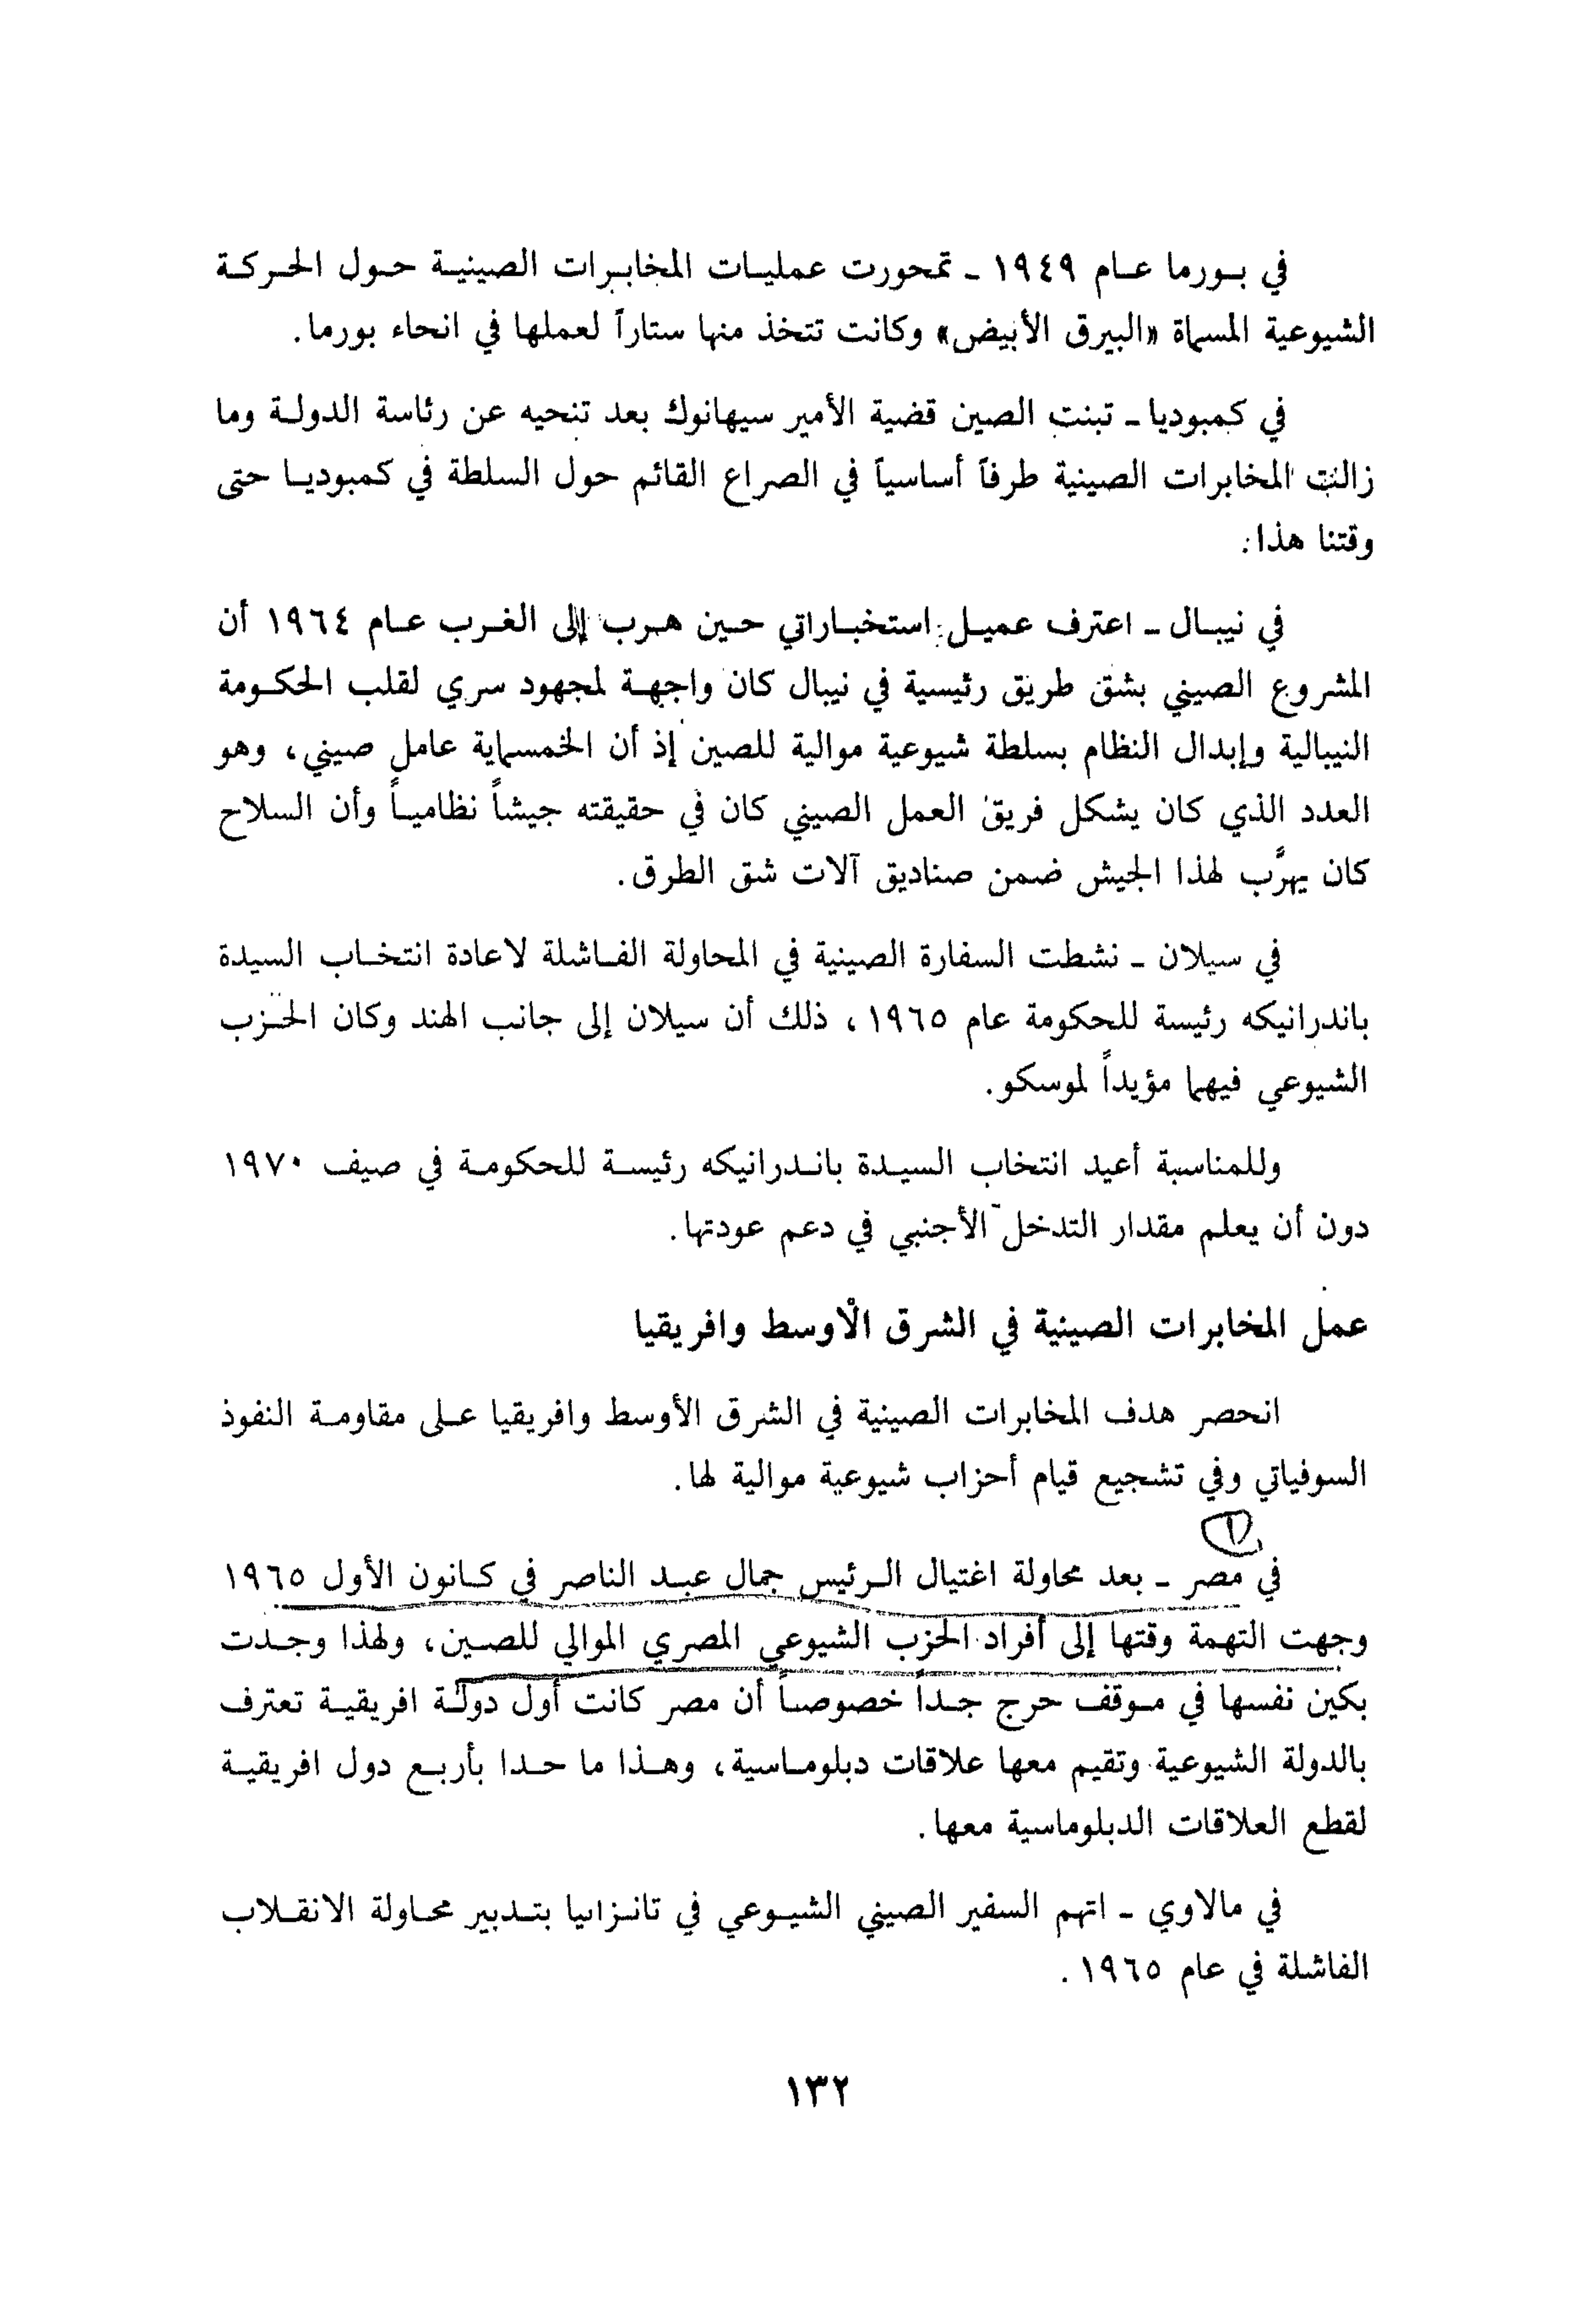 في بورما عام ١٩٤٩ - تمحورت عمليات المخابرات الصينية حول الحركة
الشيوعية المسماة «البيرق الأبيض» وكانت تتخذ منها ستاراً لعملها في انحاء بورما.
في كمبوديا - تبنت الصين قضية الأمير سيهانوك بعد تنحيه عن رئاسة الدولة وما
زالت المخابرات الصينية طرفاً أساسياً في الصراع القائم حول السلطة في كمبوديا حتى
وقتنا هذا.
في نيبال - اعترف عميل استخباراتي حين هرب إلى الغرب عام ١٩٦٤ أن
المشروع الصيني بشق طريق رئيسية في نيبال كان واجهة لمجهود سري لقلب الحكومة
النيبالية وإبدال النظام بسلطة شيوعية موالية للصين إذ أن الخمسماية عامل صيني، وهو
العدد الذي كان يشكل فريق العمل الصيني كان في حقيقته جيشاً نظامياً وأن السلاح
كان يهرَّب لهذا الجيش ضمن صناديق آلات شق الطرق.
في سيلان - نشطت السفارة الصينية في المحاولة الفاشلة لاعادة انتخاب السيدة
باندرانيكه رئيسة للحكومة عام ١٩٦٥، ذلك أن سيلان إلى جانب الهند وكان الحزب
الشيوعي فيهما مؤيداً لموسكو.
وللمناسبة أعيد انتخاب السيدة باندرانيكه رئيسة للحكومة في صيف ١٩٧٠
دون أن يعلم مقدار التدخل الأجنبي في دعم عودتها.
عمل المخابرات الصينية في الشرق الأوسط وافريقيا
انحصر هدف المخابرات الصينية في الشرق الأوسط وافريقيا على مقاومة النفوذ
السوفياتي وفي تشجيع قيام أحزاب شيوعية موالية لها.
١
في مصر - بعد محاولة اغتيال الرئيس جمال عبد الناصر في كانون الأول ١٩٦٥
وجهت التهمة وقتها إلى أفراد الحزب الشيوعي المصري الموالي للصين، ولهذا وجدت
بكين نفسها في موقف حرج جداً خصوصاً أن مصر كانت أول دولة افريقية تعترف
بالدولة الشيوعية وتقيم معها علاقات دبلوماسية، وهذا ما حدا بأربع دول افريقية
لقطع العلاقات الدبلوماسية معها.
في مالاوي - اتهم السفير الصيني الشيوعي في تانزانيا بتدبير محاولة الانقلاب
الفاشلة في عام ١٩٦٥.
١٣٢